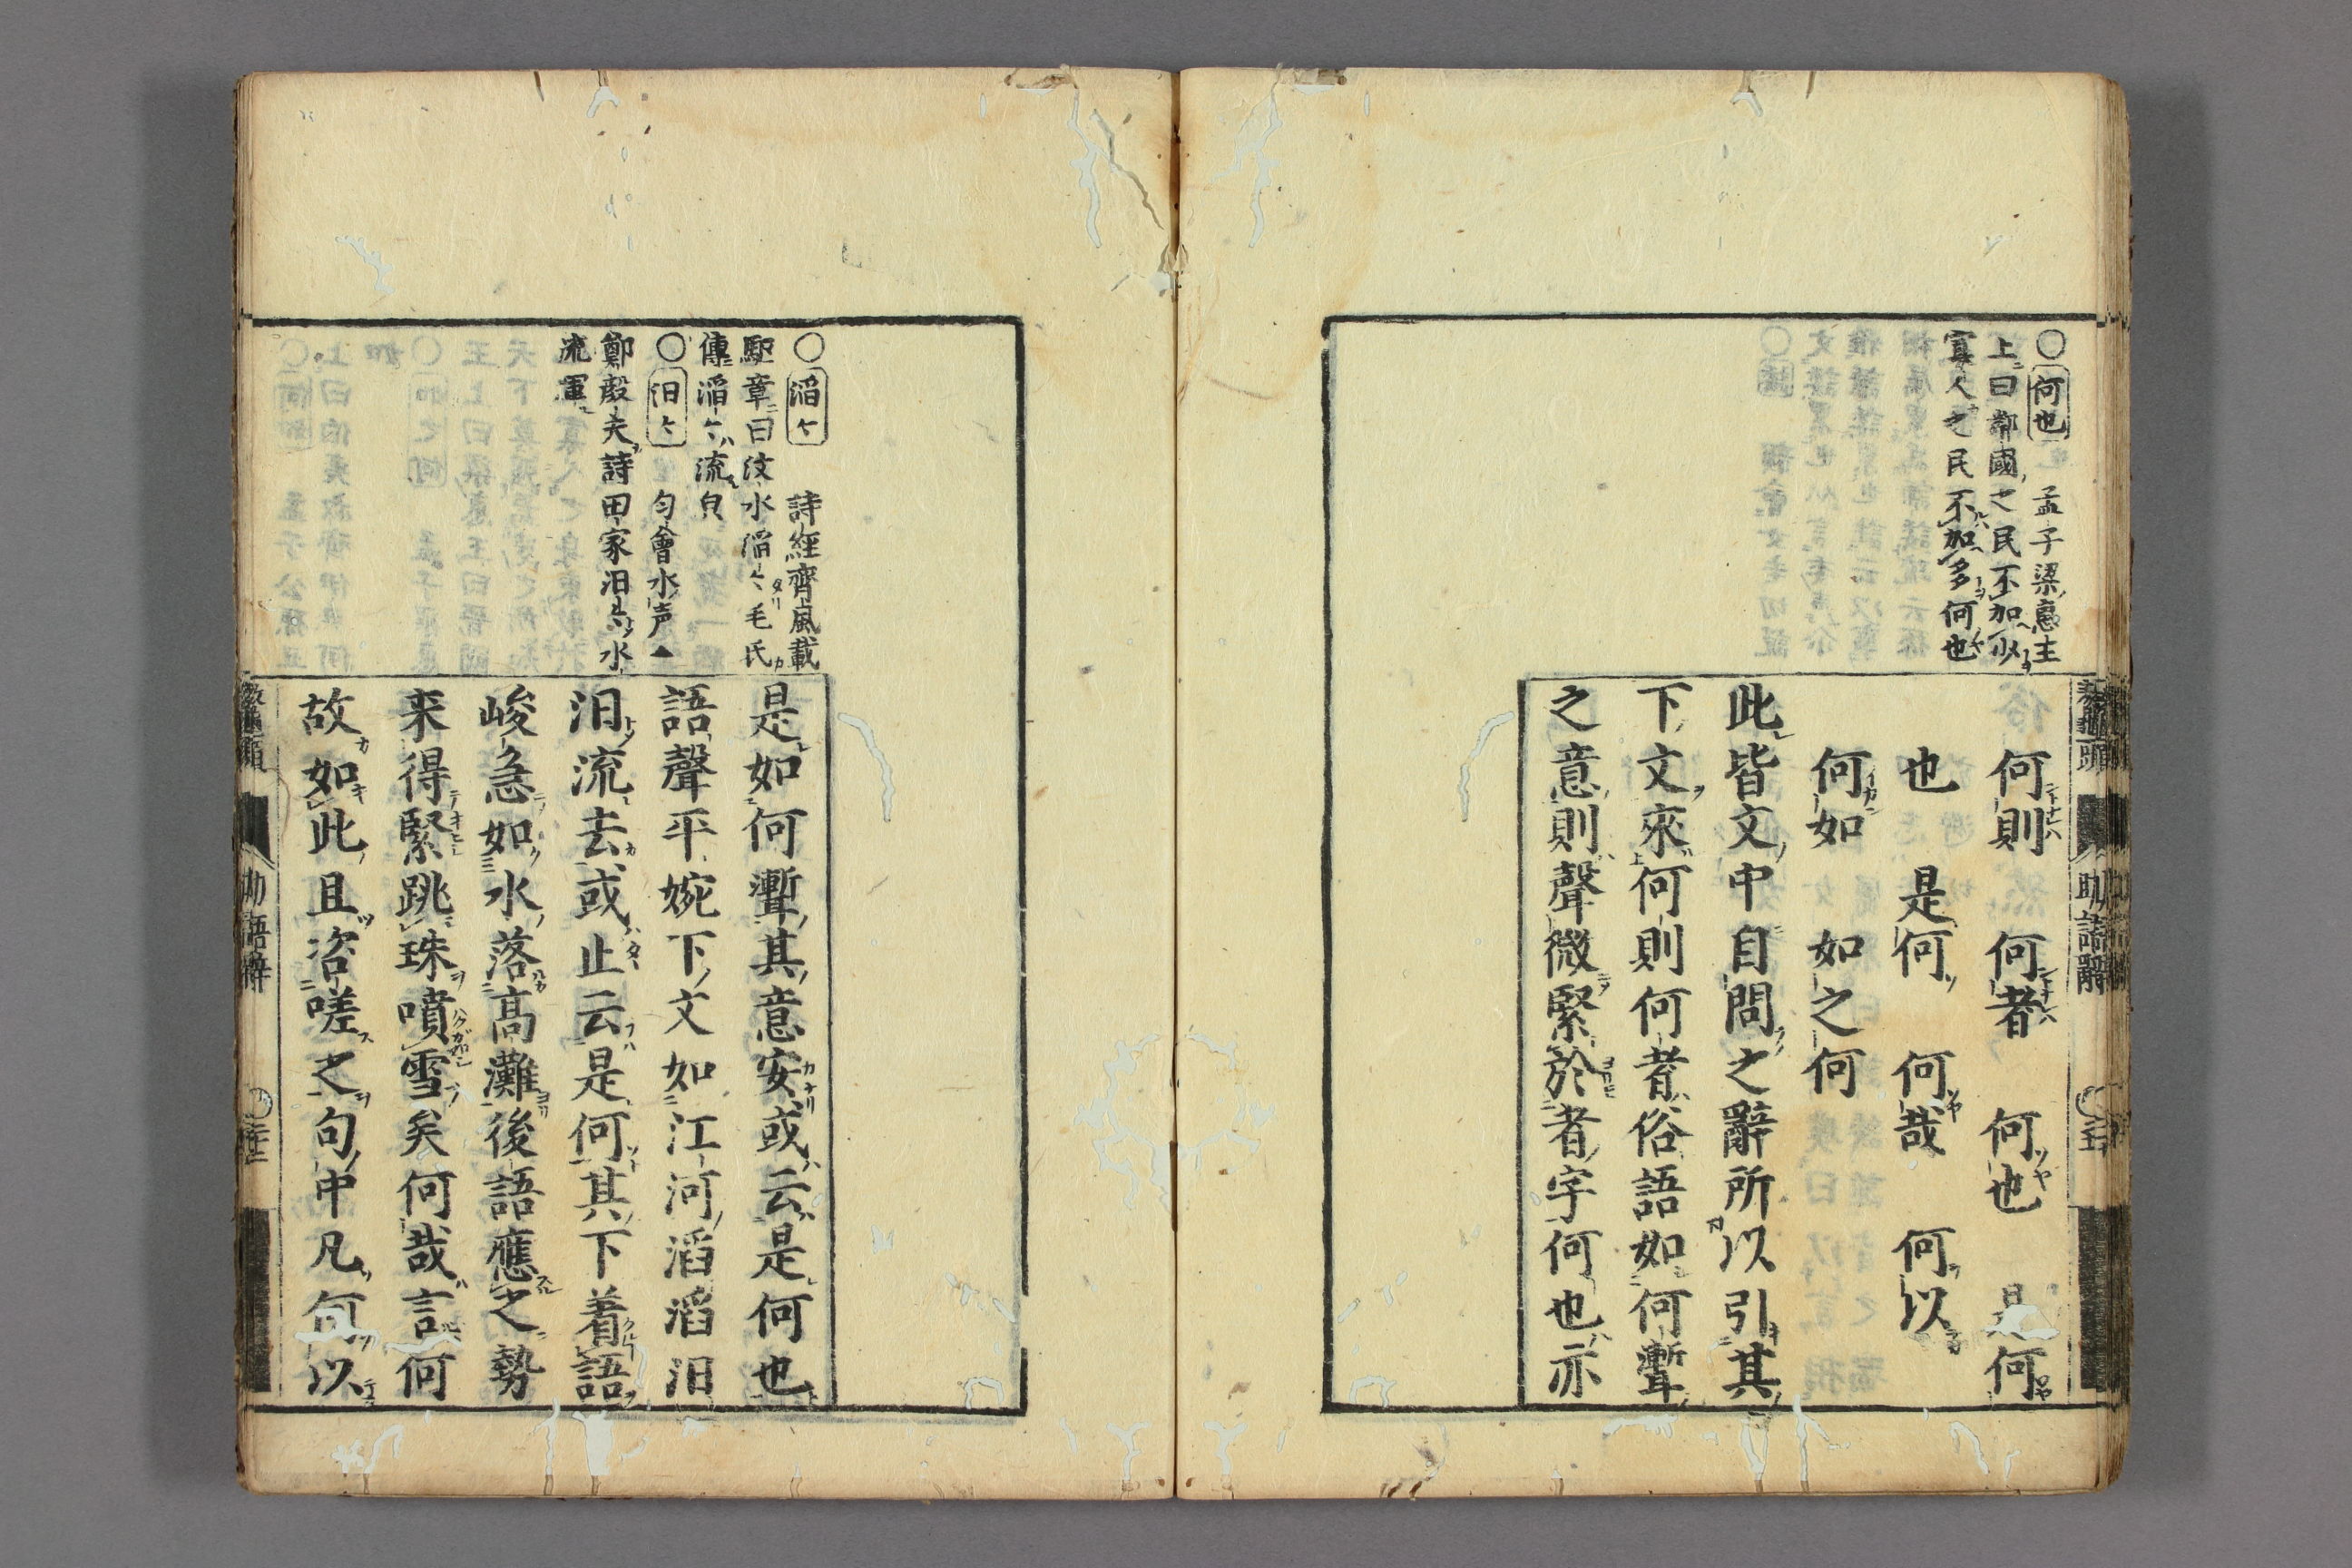 ○何也 孟子梁惠王
上曰鄰國之民不加少
寡人之民不加多何也
何則 何者 何也 是何
也 是何 何哉 何以
何如 如之何
此皆文中自問之辭所以引其
下文來何則何者俗語如何聻
之意則聲微緊於者字何也亦
助語辭
○滔〻 詩經齊風載
駆章曰汶水滔〻毛氏
傳滔〻流皃
○汩〻 匀會水声
鄭殷夫詩田家汩〻水
流渾
是如何聻其意安或云是何也
語聲平婉下文如江河滔滔汩
汩流去或止云是何其下着語
峻急如水落高灘後語應之勢
来得緊跳珠噴雪矣何哉言何
故如此且咨嗟之句中凡何以
助語辭